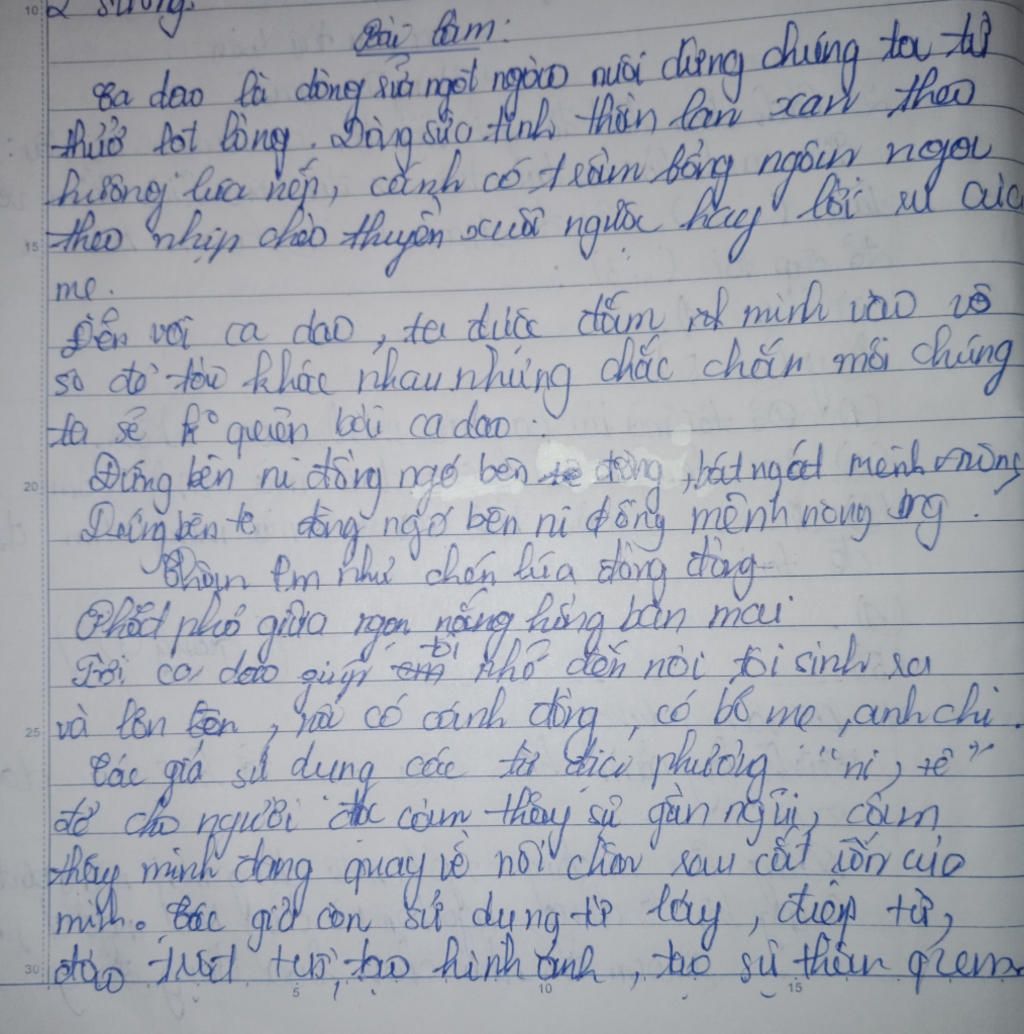 2 sương.
Bài làm:
Ca dao là dòng sữa ngọt ngào nuôi dưỡng chúng ta từ
thưở lọt lòng. Dòng sữa tinh thần lan xan theo
hương lúa nếp, cánh cò trầm bổng ngân nga
theo nhịp chèo thuyền xuôi ngược hay lời ru của
mẹ.
Đến với ca dao, ta được đắm mình vào vô
số đề tài khác nhau nhưng chắc chắn mỗi chúng
ta sẽ k° quên bài ca dao:
Đứng bên ni đồng ngó bên tê đồng, bát ngát mênh mông
Đứng bên tê đồng ngó bên ni đồng mênh mông
Thân em như chẽn lúa đòng đòng
Phất phơ giữa ngọn nắng hồng ban mai
Bài ca dao giúp tôi nhớ đến nơi tôi sinh ra
và lớn lên, nơi có cánh đồng, có bố mẹ, anh chị.
Tác giả sử dụng các từ địa phương "ni, tê"
để cho người đọc cảm thấy sự gần ngũi, cảm
thấy mình đang quay về nơi chôn rau cắt rốn của
mình. Tác giả còn sử dụng từ láy, điệp từ,
đảo trật tự, tạo hình ảnh, tạo sự thân quen